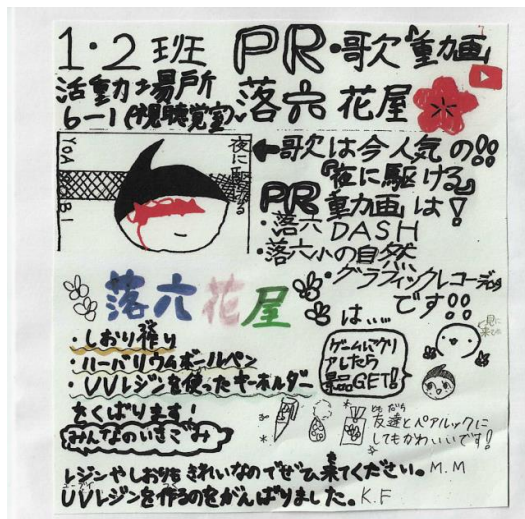 1・2班 PR・歌『動画』
活動場所
6-1(視聴覚室) 落六花屋
←歌は今人気の!!
『夜に駆ける』
YOASOBI
夜に駆ける
PR動画は!
・落六DASH
・落六小の自然
・グラフィックレコーディング
です!!
落六花屋は…
・しおり作り
・ハーバリウムボールペン
・UVレジンを使ったキーホルダー
をくばります!
ゲームにクリ
アしたら
景品GET!
見に
来てね
みんなのいきごみ
ともだち
友達とペアルックに
してもかわいいです!
レジンやしおりもきれいなのでぜひ来てください。M.M
UVレジンを作るのをがんばりました。K.F